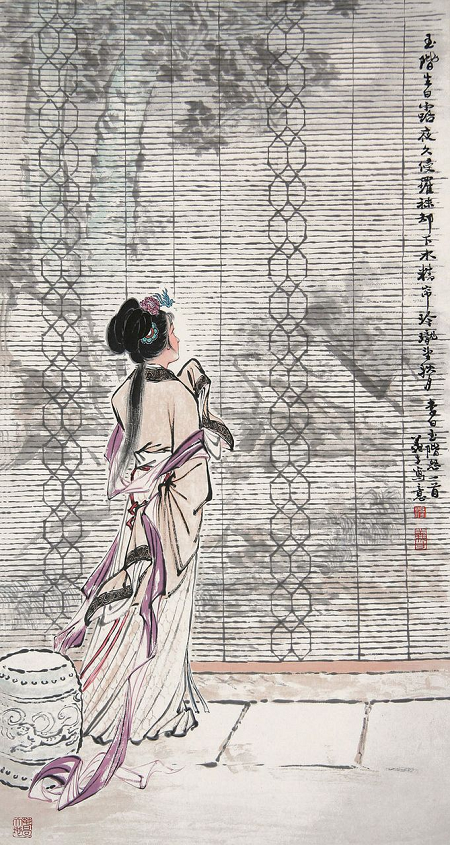 玉階生白露夜久侵羅襪卻下水精帘玲瓏望秋月 李白玉階怨一首
寫意